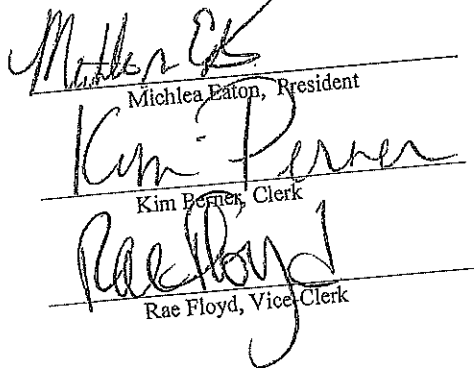 Michlea Eaton, President
Kim Perner
Kim Perner, Clerk
Rae Floyd
Rae Floyd, Vice-Clerk